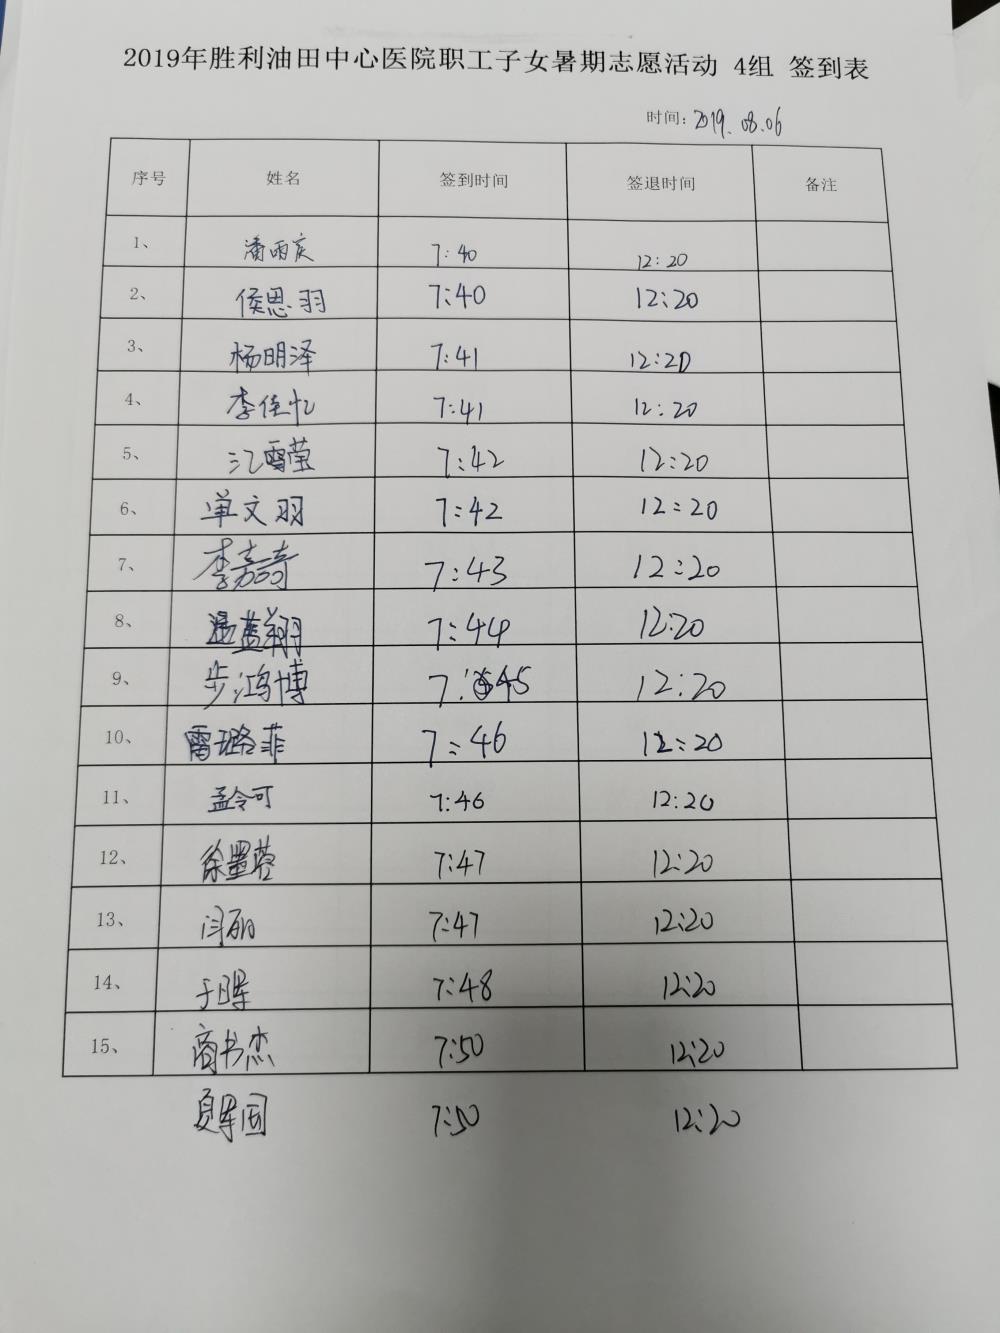 2019年胜利油田中心医院职工子女暑期志愿活动 4组 签到表
时间: 2019.08.06
序号 姓名 签到时间 签退时间 备注
1、 潘雨辰 7:40 12:20
2、 侯思羽 7:40 12:20
3、 杨明泽 7:41 12:20
4、 李佳忆 7:41 12:20
5、 江雪莹 7:42 12:20
6、 单文羽 7:42 12:20
7、 李嘉琦 7:43 12:20
8、 温蓝翔 7:44 12:20
9、 步鸿博 7:45 12:20
10、 雷璐菲 7:46 12:20
11、 孟令可 7:46 12:20
12、 徐墨蓉 7:47 12:20
13、 闫丽 7:47 12:20
14、 于晖 7:48 12:20
15、 商书杰 7:50 12:20
7:50 12:20